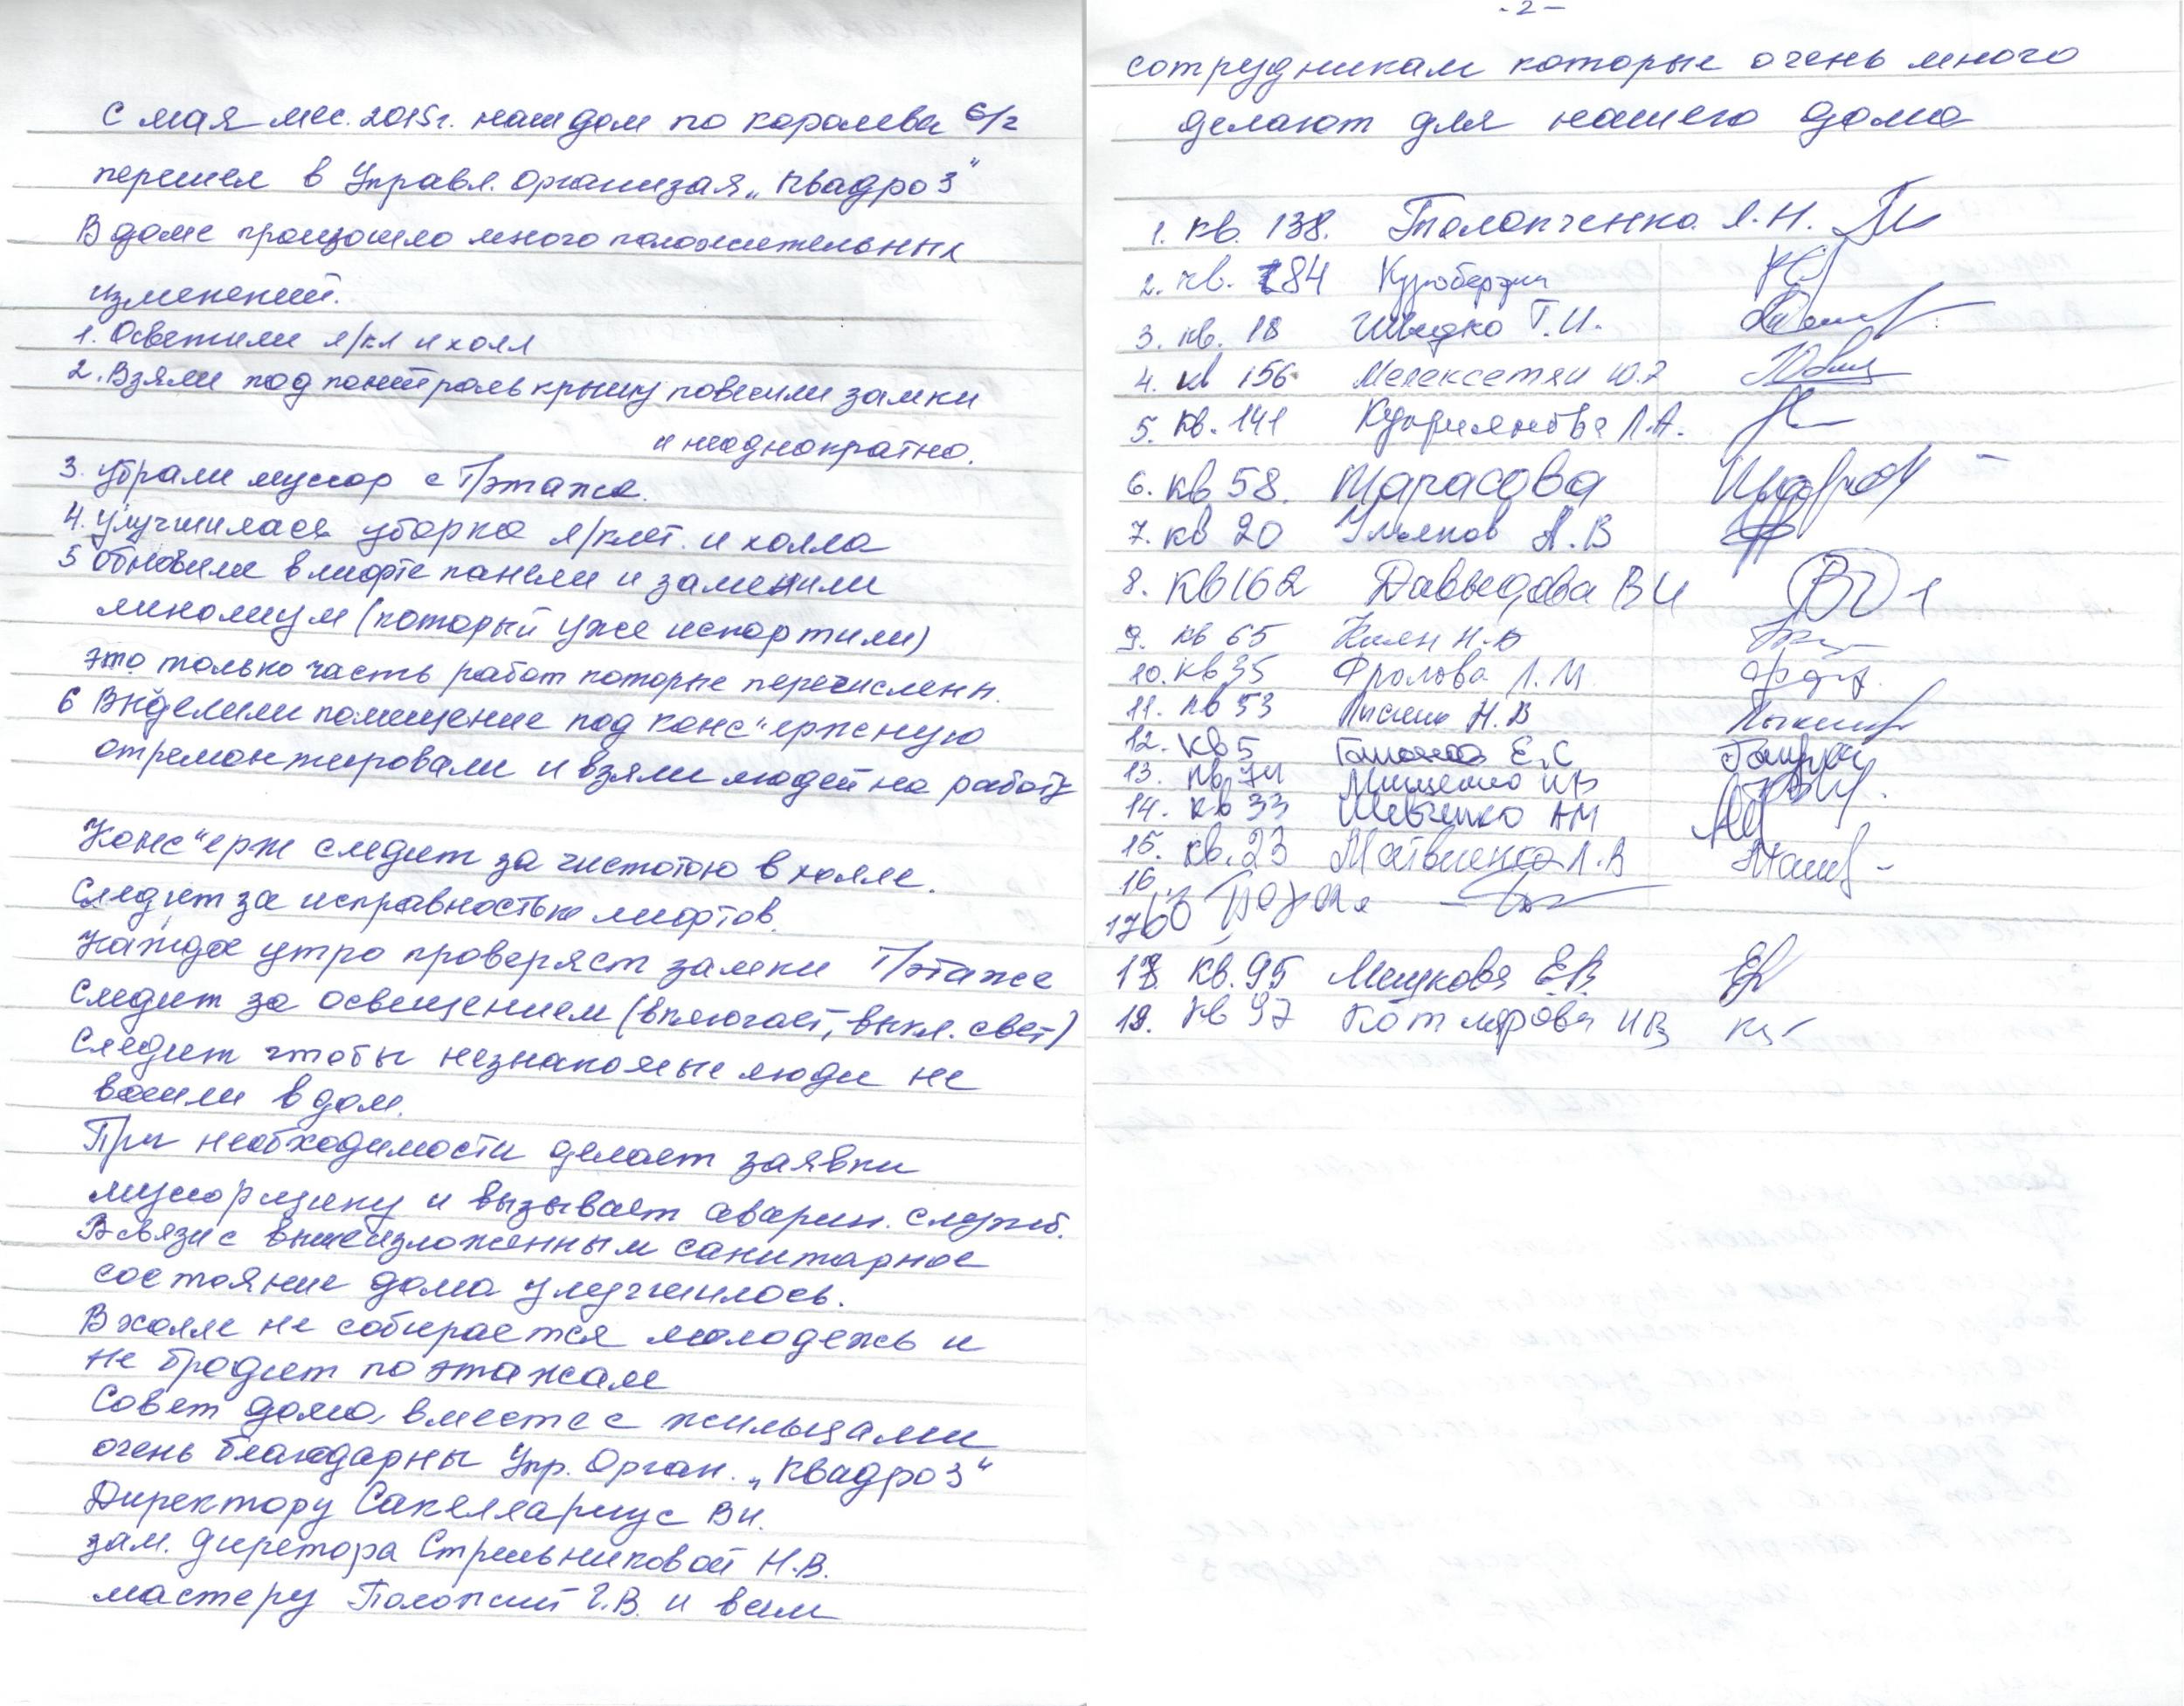 С мая мес. 2015г. наш дом по королева 6/2
перешел в Управл. Организая „Квадро 3"
В доме произошло много положительных
изменений.
1. Осветили л/кл и холл
2. Взяли под контроль крышу повесили замки
и неоднократно.
3. убрали мусор с Т/этажа.
4. улучшилась уборка л/клет. и холла
5 Обновили в лифте панели и заменили
линолиум (который уже испортили)
это только часть работ которые перечисленн.
6 Выделили помещение под конс"ержную
отремонтировали и взяли людей на работу
Конс"ерж следит за чистотою в холле.
Следит за исправностью лифтов.
Каждое утро проверяет замки Т/этаже
Следит за освещением (включает, выкл. свет)
Следит чтобы незнакомые люди не
вошли в дом.
При необходимости делает заявки
мусорщику и вызывает аварин. служб.
В связи с вышеизложенным санитарное
состояние дома улучшилось.
В холле не собирается молодежь и
не бродит по этажам
Совет дома вместе с жильцами
очень благодарны Упр. Орган. „Квадро 3"
Директору Сакеллариус ВИ.
зам. диретора Стрельниковой Н.В.
мастеру Г.В. и всем
- 2 -
сотрудникам которые очень много
делают для нашего дома
1. кв. 138. Толопченко Л.Н.
2. кв. 84
3. кв. 18 Швидко Т.И.
4. кв 156 Мелексетян Ю.
5. кв. 141 Л.А.
6. кв 58. Тарасова
7. кв 20 Ульянов А.В
8. Кв 162 Давыдова В И
9. кв 65 Килян Н.В
10. кв 35 Фролова Л.М
11. кв 53 Н.В
12. кв 5 Е.С
13. кв. 74 Мищенко
14. кв 33 Шевченко АМ
15. кв. 23 Матвиенко Л.В
16.
17
18 кв. 95 Мешкова Е.В
19. кв 97 Котлярова И В